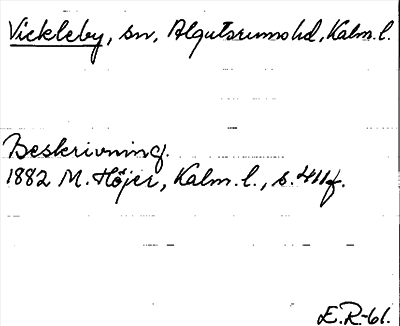 Vickleby, sn, Algutsrums hd, Kalm. l.
Beskrivning.
1882 M. Höjer, Kalm. l., s. 411f.
E.R.-61.